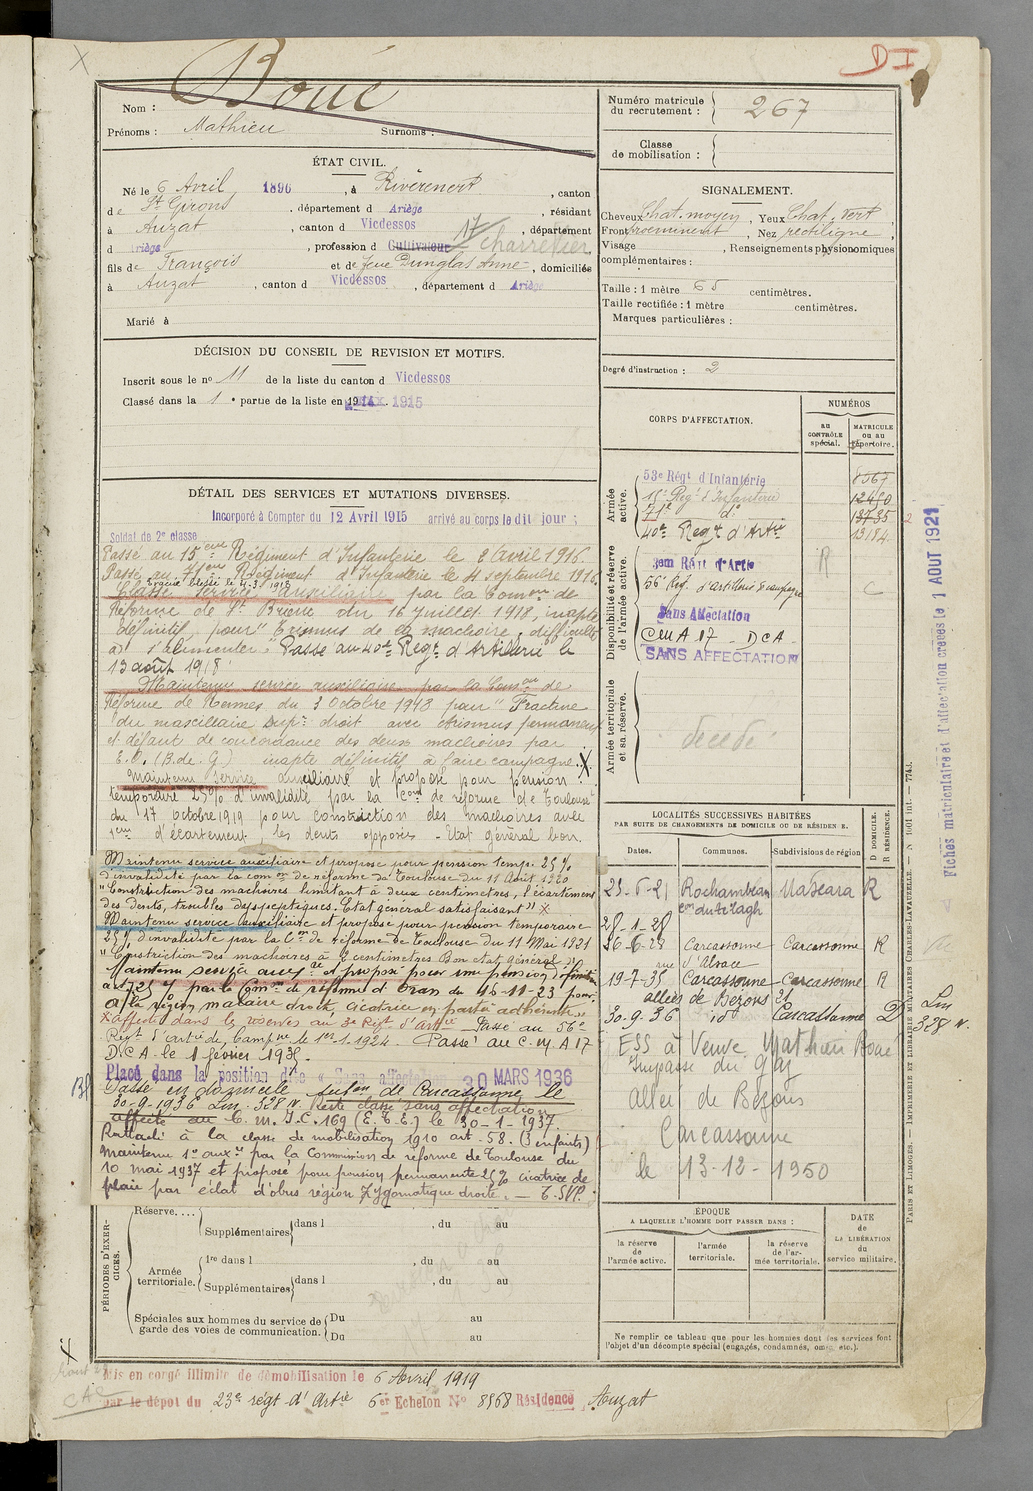 D I
Boué
Nom :
Prénoms : Mathieu Surnoms :
ÉTAT CIVIL.
Né le 6 Avril 1896, à Rivèrenert, canton
de St Girons, département d Ariège, résidant
à Auzat, canton d Vicdessos, département
d Ariège, profession d Cultivateur 17 charretier
fils de François et de feue Dunglas Anne, domiciliés
à Auzat, canton d Vicdessos, département d Ariège
Marié à
DÉCISION DU CONSEIL DE REVISION ET MOTIFS.
Inscrit sous le nº 11 de la liste du canton d Vicdessos
Classé dans la 1e partie de la liste en 1915
DÉTAIL DES SERVICES ET MUTATIONS DIVERSES.
Incorporé à Compter du 12 Avril 1915 arrivé au corps le dit jour ;
Soldat de 2e classe
Passé au 15eme Régiment d'Infanterie le 2 avril 1916.
Passé au 71eme Régiment d'Infanterie le 4 septembre 1916.
Classé service auxiliaire par la Comon de
Réforme de St Brieuc du 16 juillet 1918, inapte
définitif, pour "Trismus de la machoire, difficulté
à s'alimenter. Passé au 40e Regt d'Artillerie le
13 août 1918.
Maintenu service auxiliaire par la Comon de
Réforme de Rennes du 3 Octobre 1918 pour "Fracture
du maxillaire supr droit avec trismus permanent
et défaut de concordance des deux machoires par
E.O. (B. de G.) inapte définitif à faire campagne. X
Maintenu service auxiliaire et proposé pour pension
temporaire 25% d'invalidité par la Com de réforme de Toulouse
du 17 octobre 1919 pour constriction des machoires avec
d'écartement, les dents opposées - Etat général bon.
Maintenu service auxiliaire et proposé pour pension temp. 25%
d'invalidité par la comon de réforme de Toulouse du 11 Août 1920
"Constriction des machoires limitant à deux centimètres, l'écartement
des dents, troubles dyspeptiques. Etat général satisfaisant" X
Maintenu service auxiliaire et proposé pour pension temporaire
25% d'invalidité par la Con de réforme de Toulouse du 11 Mai 1921
"Constriction des machoires à 2 centimètres Bon état général"
Maintenu service auxre et proposé pour une pension définitive
par la Comon de réforme d'Oran du 16-11-23 pour
région malaire droite, cicatrice en partie adhérente.
X affecté dans les réserves au 3e Regt d'Artie Passé au 56e
Regt d'Artie de Campne le 1er 1.1924. Passé au C.M A 17
D.C.A. le 1 février 193
Placé dans la position dite « Sans affectation » 30 MARS 1936
Passé en domicile subon de Carcassonne le
30-9-1936 Lm. 328 N. Reste classé sans affectation
affecté au C. m. I.C. 169 (E.T.E.) le 30-1-1937.
Rattaché à la classe de mobilisation 1910 art. 58. (3 enfants)
Maintenu sce auxre par la Commission de réforme de Toulouse du
10 mai 1937 et proposé pour pension permanente 25% cicatrice de
plaie par éclat d'obus région Zygomatique droite. — T.SVP.
PÉRIODES D'EXERCICES.
Réserve....
Supplémentaires dans l , du au
Armée territoriale.
1re dans l , du au
Supplémentaires dans l , du au
Spéciales aux hommes du service de garde des voies de communication.
Du au
Du au
Mis en congé illimité de démobilisation le 6 Avril 1919
par le dépôt du 23e régt d'Artie 6er Echelon Nº 8568 Résidence Auzat
Numéro matricule du recrutement : 267
Classe de mobilisation :
SIGNALEMENT.
Cheveux Chat. moyen, Yeux Chat. vert,
Front proéminent, Nez rectiligne,
Visage , Renseignements physionomiques
complémentaires :
Taille : 1 mètre 65 centimètres.
Taille rectifiée : 1 mètre centimètres.
Marques particulières :
Degré d'instruction : 2
CORPS D'AFFECTATION.
NUMÉROS
au CONTRÔLE spécial.
MATRICULE ou au répertoire.
Armée active.
53e Régt d'Infanterie 8567
15e Regt d'Infanterie 12480
71e do 13735
40e Regt d'Artie 13184
Disponibilité et réserve de l'armée active.
3em Rég d'Artie R
56e Reg. d'artillerie Campagne C
Sans Affectation
CM A 17 - DCA -
SANS AFFECTATION
Armée territoriale et sa réserve.
décédé
LOCALITÉS SUCCESSIVES HABITÉES
PAR SUITE DE CHANGEMENTS DE DOMICILE OU DE RÉSIDENCE.
Dates. Communes. Subdivisions de région
D DOMICILE. R RÉSIDENCE.
25-6-21 Rochambeau Mascara R
com du Telagh
28-1-28
26-6-28 Carcassonne Carcassonne R
rue d'Alsace
19-7-35 Carcassonne Carcassonne R
allées de Bezons 21
30-9-36 id Carcassonne D Lm 328 N.
ESS à Veuve Mathieu Boué
Impasse du Gaz
Allée de Bezons
Carcassonne
le 13-12-1950
ÉPOQUE
A LAQUELLE L'HOMME DOIT PASSER DANS :
la réserve de l'armée active.
l'armée territoriale.
la réserve de l'armée territoriale.
DATE de LA LIBÉRATION du service militaire.
Ne remplir ce tableau que pour les hommes dont les services font
l'objet d'un décompte spécial (engagés, condamnés, omis, etc.).
Fiches matriculaire et d'affectation créées le 1 AOUT 1921
PARIS ET LIMOGES. — IMPRIMERIE ET LIBRAIRIE MILITAIRES CHARLES-LAVAUZELLE.